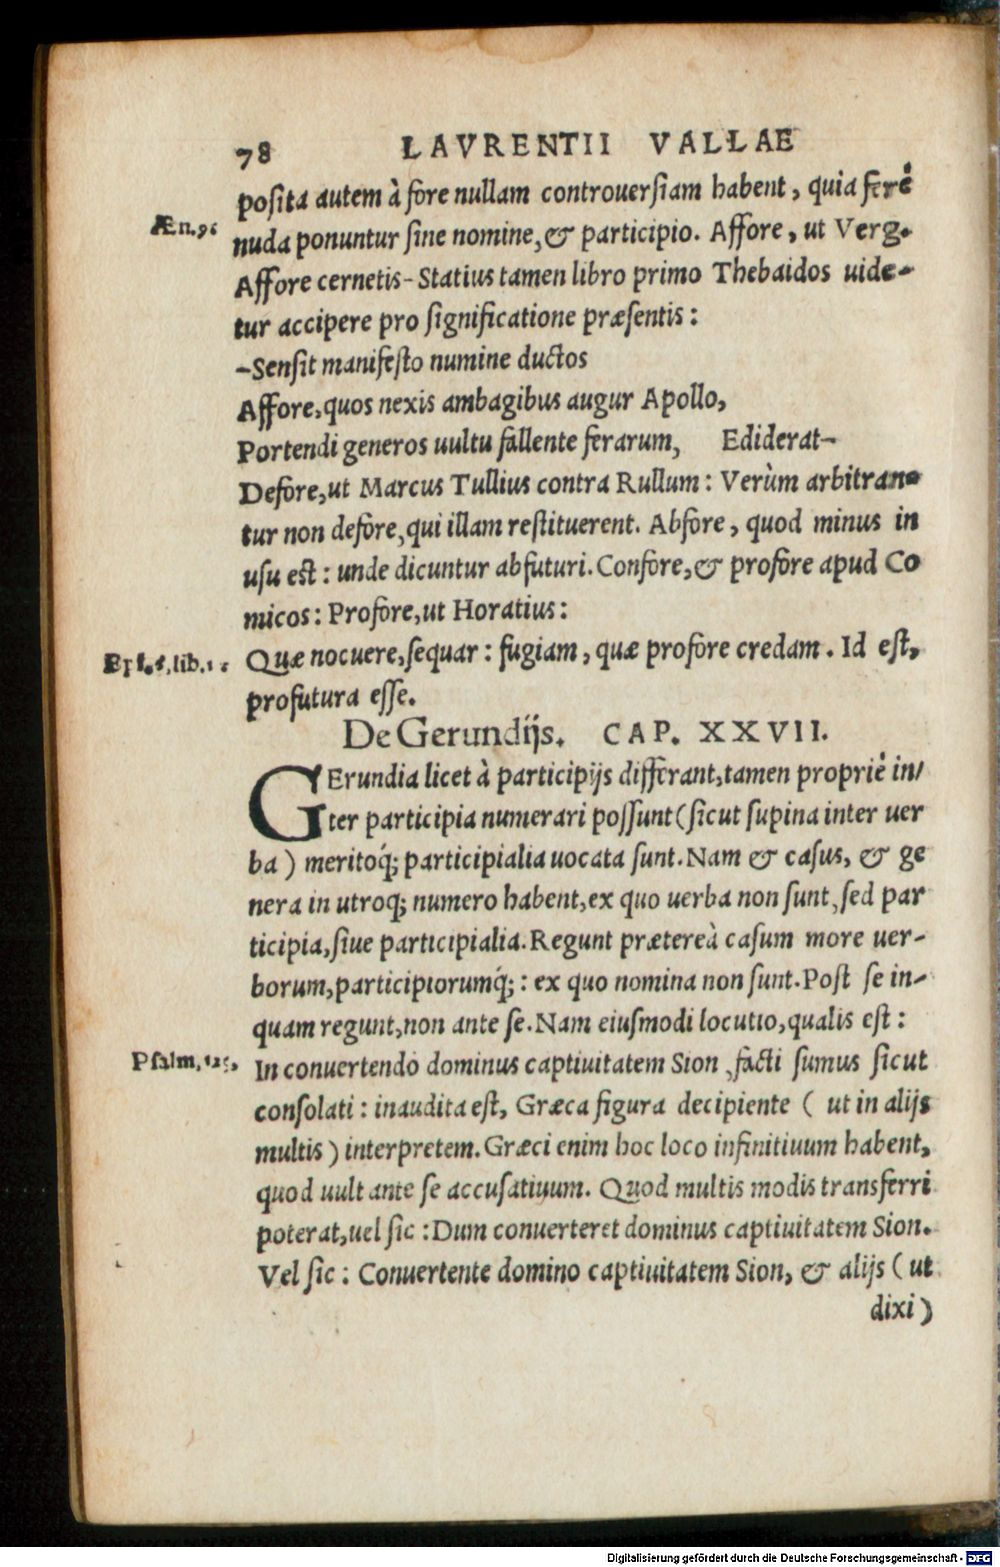 78 LAVRENTII VALLAE
posita autem à fore nullam controuersiam habent, quia ferè
Æn.9.
nuda ponuntur sine nomine, & participio. Affore, ut Verg.
Affore cernetis-Statius tamen libro primo Thebaidos uide-
tur accipere pro significatione præsentis:
-Sensit manifesto numine ductos
Affore, quos nexis ambagibus augur Apollo,
Portendi generos uultu fallente ferarum, Ediderat-
Defore, ut Marcus Tullius contra Rullum: Verùm arbitran-
tur non defore, qui illam restituerent. Abfore, quod minus in
usu est: unde dicuntur abfuturi. Confore, & profore apud Co
micos: Profore, ut Horatius:
lib.1.
Quæ nocuere, sequar: fugiam, quæ profore credam. Id est,
profutura esse.
De Gerundijs. CAP. XXVII.
GErundia licet à participijs differant, tamen propriè in/
ter participia numerari possunt (sicut supina inter uer
ba) meritoq́; participialia uocata sunt. Nam & casus, & ge
nera in utroq; numero habent, ex quo uerba non sunt, sed par
ticipia, siue participialia. Regunt prætereà casum more uer-
borum, participiorumq́;: ex quo nomina non sunt. Post se in-
quam regunt, non ante se. Nam eiusmodi locutio, qualis est:
Psalm.125.
In conuertendo dominus captiuitatem Sion, facti sumus sicut
consolati: inaudita est, Græca figura decipiente ( ut in alijs
multis) interpretem. Græci enim hoc loco infinitiuum habent,
quod uult ante se accusatiuum. Quod multis modis transferri
poterat, uel sic: Dum conuerteret dominus captiuitatem Sion.
Vel sic: Conuertente domino captiuitatem Sion, & alijs (ut
dixi)
Digitalisierung gefördert durch die Deutsche Forschungsgemeinschaft - DFG